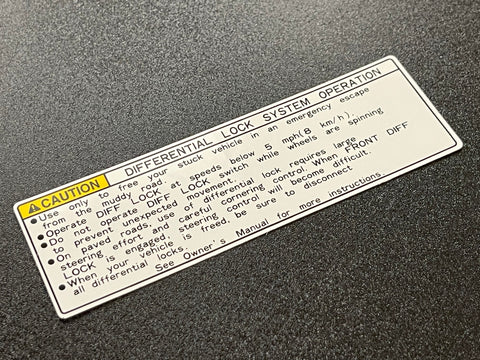 CAUTION DIFFERENTIAL LOCK SYSTEM OPERATION
● Use only to free your stuck vehicle in an emergency escape
from the muddy road.
● Operate DIFF LOCK at speeds below 5 mph(8 km/h),
● Do not operate DIFF LOCK switch while wheels are spinning
to prevent unexpected movement.
● On paved roads, use of differential lock requires large
steering effort and careful cornering control. When FRONT DIFF
LOCK is engaged, steering control will become difficult.
● When your vehicle is freed, be sure to disconnect
all differential locks.
See Owner's Manual for more instructions